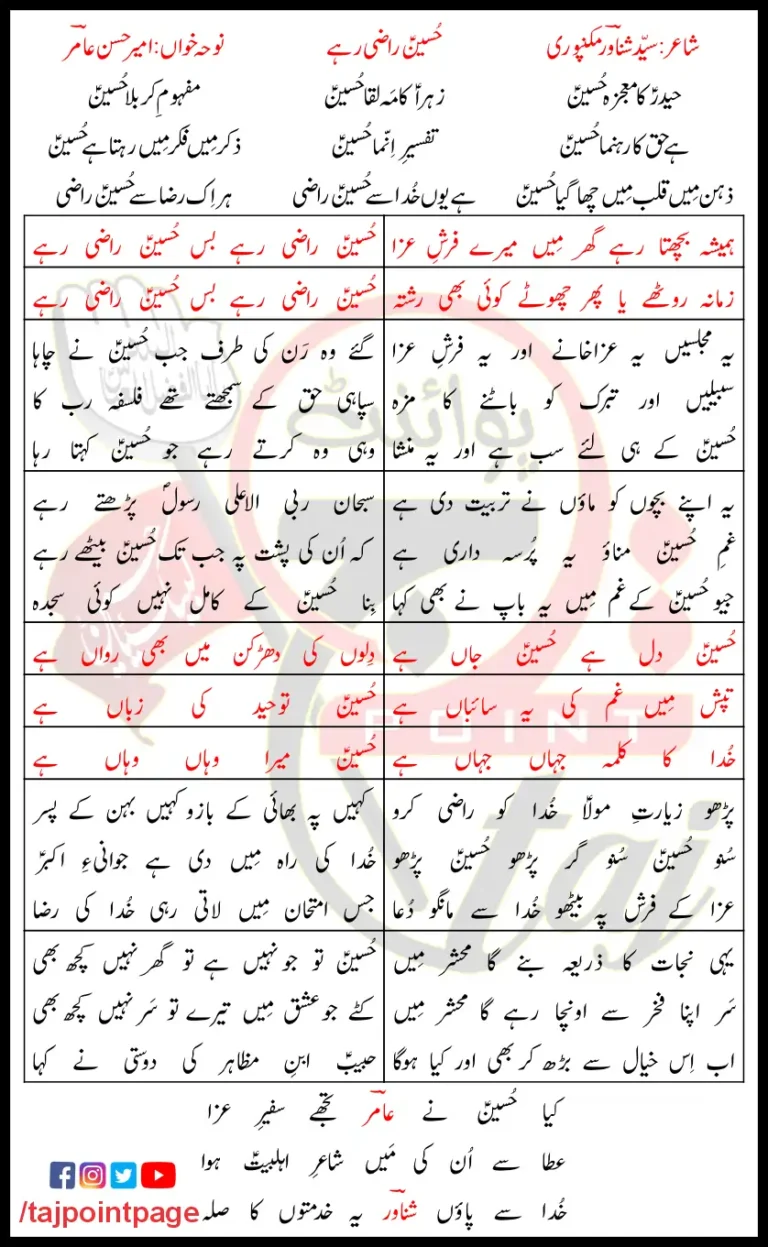 شاعر: سیّد شناورؔ مکنپوری حُسینؑ راضی رہے نوحہ خواں: امیر حسن عامرؔ
حیدرؑ کا معجزہ حُسینؑ زہراؑ کا مَہ لقا حُسینؑ مفہومِ کربلا حُسینؑ
ہے حق کا رہنما حُسینؑ تفسیرِ اِنّما حُسینؑ ذکر مِیں فکر مِیں رہتا ہے حُسینؑ
ذہن مِیں قلب مِیں چھا گیا حُسینؑ ہے یوں خُدا سے حُسینؑ راضی ہر اِک رضا سے حُسینؑ راضی
ہمیشہ بچھتا رہے گھر مِیں میرے فرشِ عزا حُسینؑ راضی رہے بس حُسینؑ راضی رہے
زمانہ روٹھے یا پھر چھوٹے کوئی بھی رشتہ حُسینؑ راضی رہے بس حُسینؑ راضی رہے
یہ مجلسیں یہ عزاخانے اور یہ فرشِ عزا
سبیلیں اور تبرک کو باٹنے کا مزہ
حُسینؑ کے ہی لئے سب ہے اور یہ منشا
گئے وہ رَن کی طرف جب حُسینؑ نے چاہا
سپاہی حق کے سمجھتے تھے فلسفہ رب کا
وہی وہ کرتے رہے جو حُسینؑ کہتا رہا
یہ اپنے بچوں کو ماؤں نے تربیت دی ہے
غمِ حُسینؑ مناؤ یہ پُرسہ داری ہے
جیو حُسینؑ کے غم مِیں یہ باپ نے بھی کہا
سبحان ربی الاعلی رسولؐ پڑھتے رہے
کہ اُن کی پشت پہ جب تک حُسینؑ بیٹھے رہے
بِنا حُسینؑ کے کامل نہیں کوئی سجدہ
حُسینؑ دل ہے حُسینؑ جاں ہے دِلوں کی دھڑکن میں بھی رواں ہے
تپش مِیں غم کی یہ سائباں ہے حُسینؑ توحید کی زباں ہے
خُدا کا کلمہ جہاں جہاں ہے حُسینؑ میرا وہاں وہاں ہے
پڑھو زیارتِ مولاؑ خُدا کو راضی کرو
سُنو حُسینؑ سُنو گر پڑھو حُسینؑ پڑھو
عزا کے فرش پہ بیٹھو خُدا سے مانگو دُعا
کہیں پہ بھائی کے بازو کہیں بہن کے پسر
خُدا کی راہ مِیں دی ہے جوانیِء اکبرؑ
جس امتحان مِیں لاتی رہی خُدا کی رضا
یہی نجات کا ذریعہ بنے گا محشر مِیں
سَر اپنا فخر سے اونچا رہے گا محشر مِیں
اب اِس خیال سے بڑھ کر بھی اور کیا ہوگا
حُسینؑ تو جو نہیں ہے تو گھر نہیں کچھ بھی
کٹے جو عشق مِیں تیرے تو سَر نہیں کچھ بھی
حبیبؑ ابنِ مظاہر کی دوستی نے کہا
کیا حُسینؑ نے عامرؔ تجھے سفیرِ عزا
عطا سے اُن کی مَیں شاعرِ اہلبیتؑ ہوا
خُدا سے پاؤں شناورؔ یہ خدمتوں کا صلہ
/tajpointpage
پوائنٹ
POINT
taj